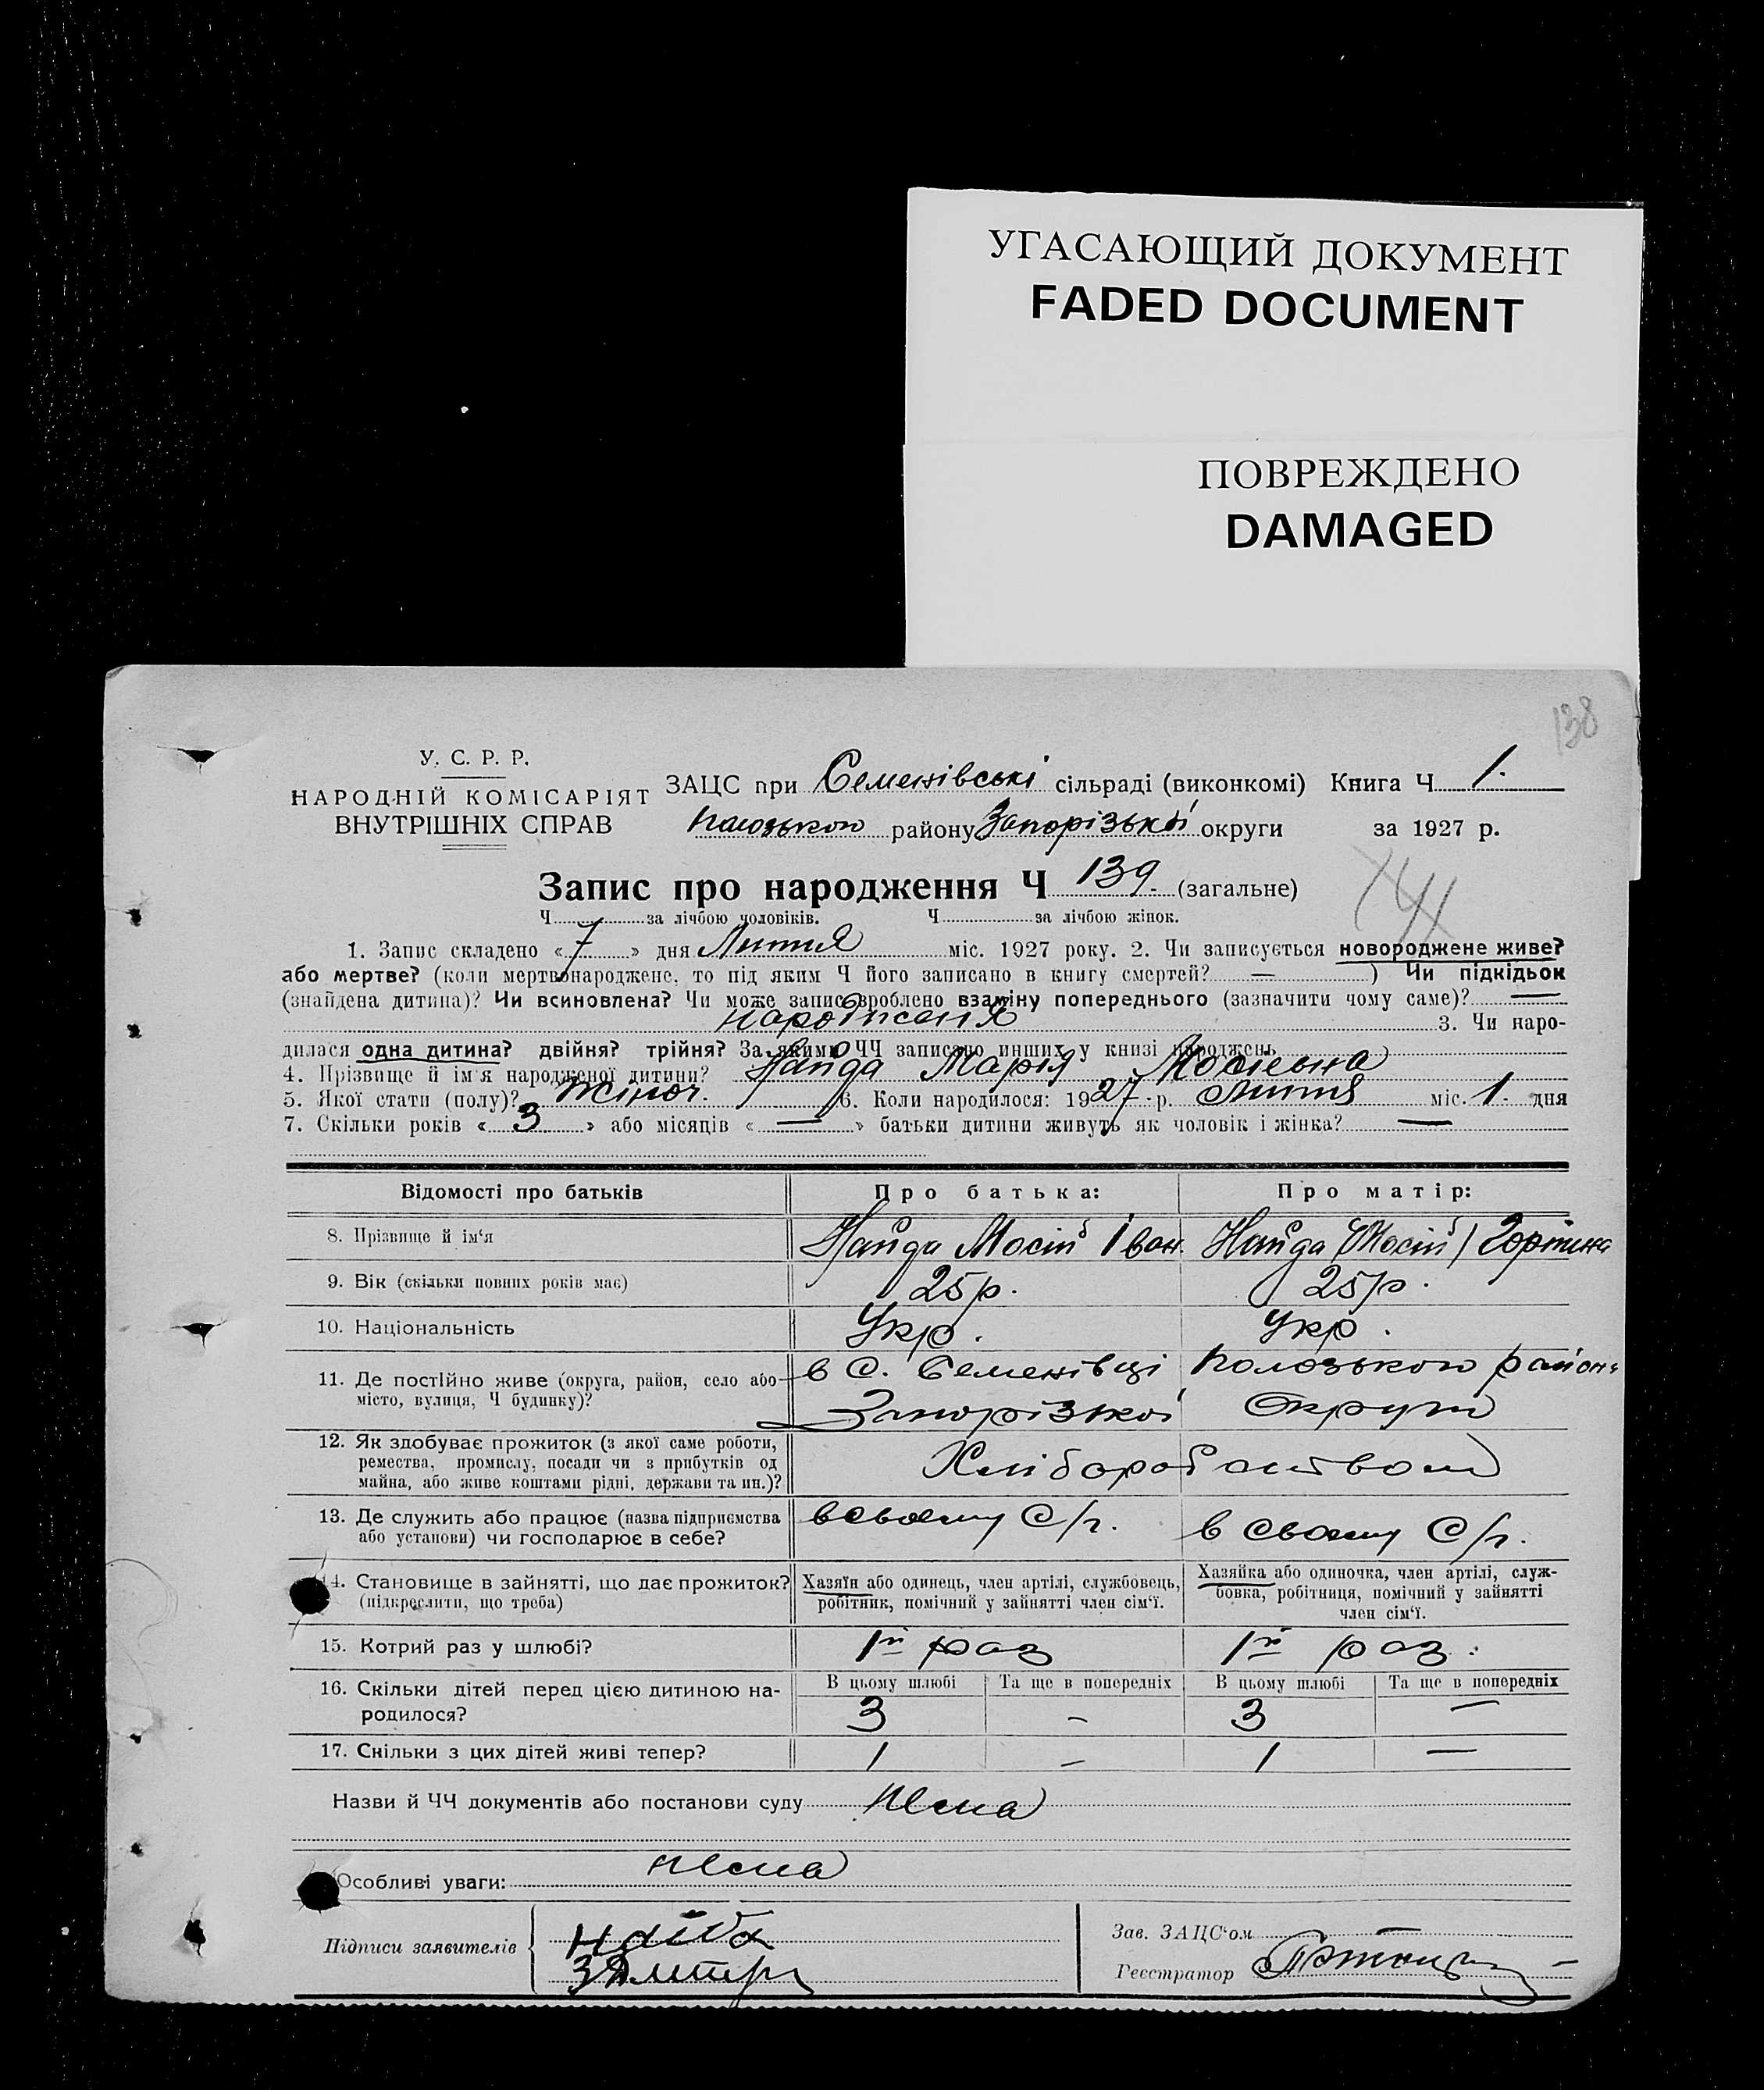 УГАСАЮЩИЙ ДОКУМЕНТ
FADED DOCUMENT
ПОВРЕЖДЕНО
DAMAGED
138
У. С. Р. Р.
НАРОДНІЙ КОМІСАРІЯТ
ВНУТРІШНІХ СПРАВ
ЗАЦС при Семенівські сільраді (виконкомі) Книга Ч 1.
Полозького району Запорізької округи за 1927 р.
Запис про народження Ч 139. (загальне)
Ч за лічбою чоловіків. Ч за лічбою жінок.
1. Запис складено « 7 » дня Липня міс. 1927 року. 2. Чи записується новороджене живе?
або мертве? (коли мертвонароджене, то під яким Ч його записано в книгу смертей? — ) Чи підкідьок
(знайдена дитина)? Чи всиновлена? Чи може запис зроблено взаміну попереднього (зазначити чому саме)? —
3. Чи наро-
дилася одна дитина? двійня? трійня? За якими ЧЧ записано инших у книзі народжень
4. Прізвище й ім'я народженої дитини? Найда Марія Мосіевна
5. Якої стати (полу)? Жіноч. 6. Коли народилося: 1927 р. Липня міс. 1. дня
7. Скільки років « 3 » або місяців « — » батьки дитини живуть як чоловік і жінка? —
Відомості про батьків Про батька: Про матір:
8. Прізвище й ім'я Найда Мосій Іван. Найда (Мосій)
9. Вік (скільки повних років має) 25 р. 25 р.
10. Національність Укр. Укр.
11. Де постійно живе (округа, район, село або в с. Семенівці Полозького району
місто, вулиця, Ч будинку)? Запорізкої Округи
12. Як здобуває прожиток (з якої саме роботи,
ремества, промислу, посади чи з прибутків од
майна, або живе коштами рідні, держави та ин.)? Хліборобством
13. Де служить або працює (назва підприємства в своему С/г. в своему С/г.
або установи) чи господарює в себе?
14. Становище в зайнятті, що дає прожиток? Хазяїн або одинець, член артілі, службовець, Хазяйка або одиночка, член артілі, служ-
(підкреслити, що треба) робітник, помічний у зайнятті член сім'ї. бовка, робітниця, помічний у зайнятті
член сім'ї.
15. Котрий раз у шлюбі? 1й раз 1й раз.
16. Скільки дітей перед цією дитиною на- В цьому шлюбі Та ще в попередніх В цьому шлюбі Та ще в попередніх
родилося? 3 – 3 –
17. Скільки з цих дітей живі тепер? 1 – 1 —
Назви й ЧЧ документів або постанови суду Нема
Особливі уваги: нема
Підписи заявителів Найда
Зав. ЗАЦС'ом
Реєстратор